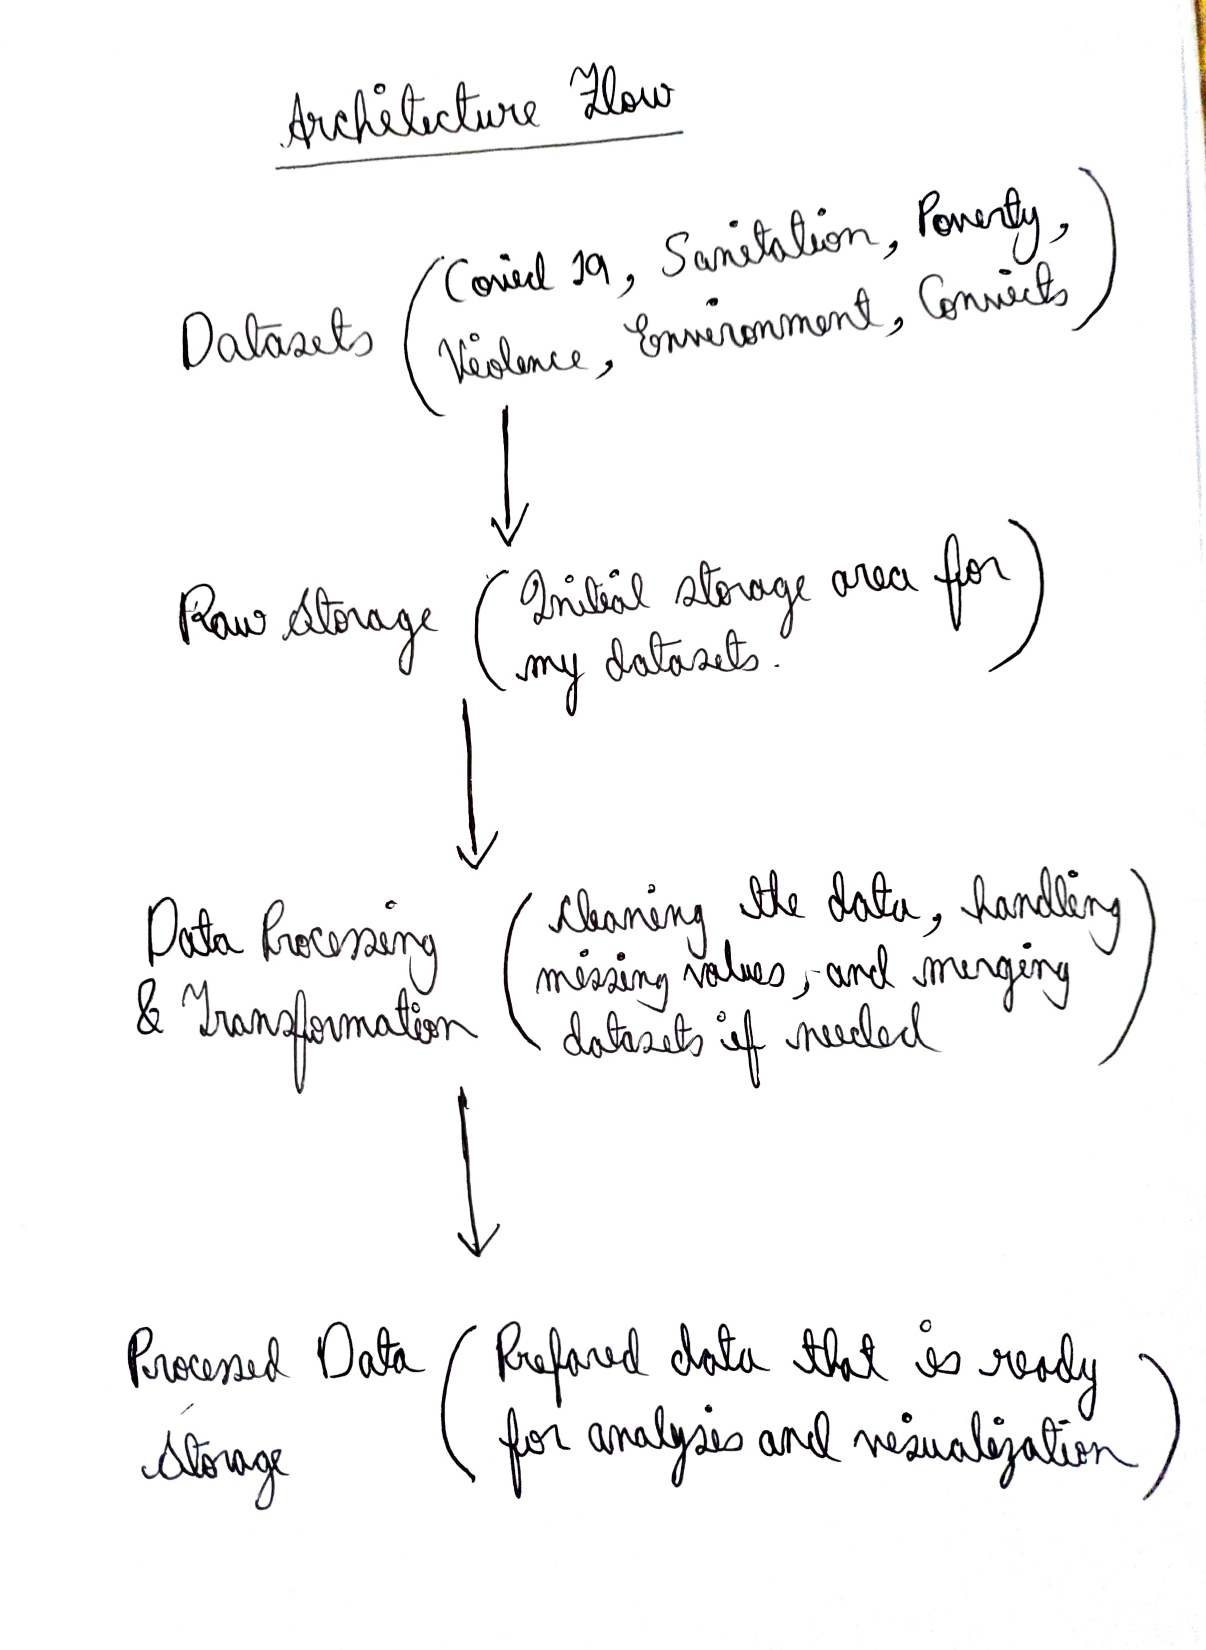 Architecture Flow
Datasets (Covid 19, Sanitation, Poverty,
Violence, Environment, Convicts)
Raw Storage (Initial storage area for
my datasets.)
Data Processing
& Transformation
(cleaning the data, handling
missing values, and merging
datasets if needed)
Processed Data
Storage
(Prepared data that is ready
for analysis and visualization)